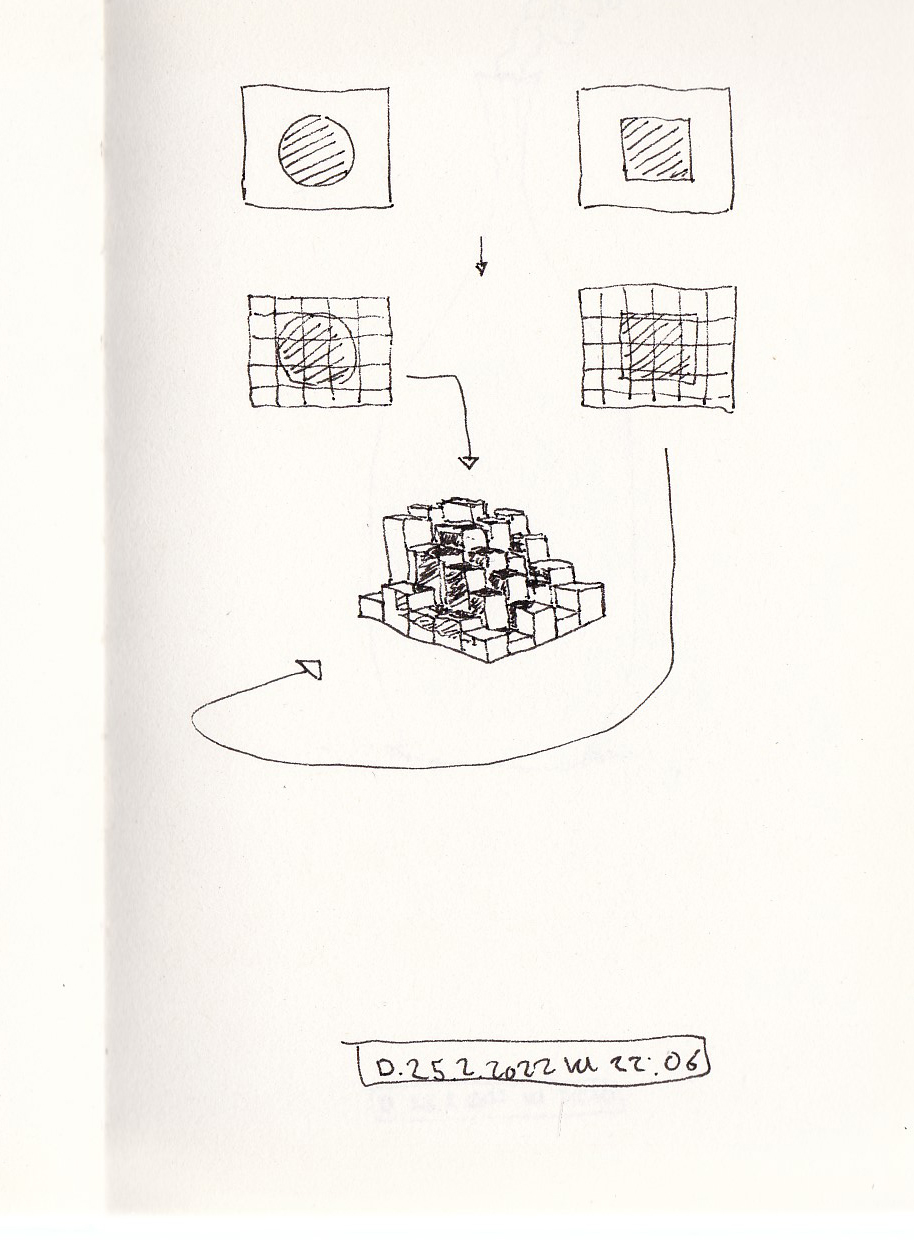 D. 25 2. 2022 kl 22:06